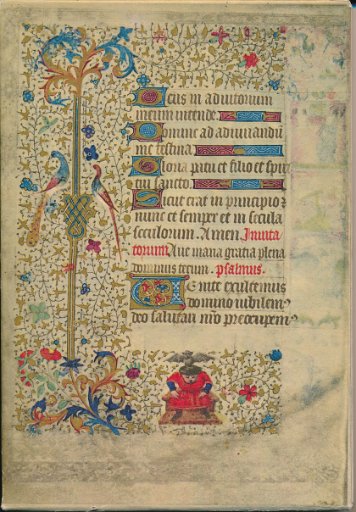 Deus in adiutorium
meum intende
Domine ad adiuuandū
me festina
Gloria patri et filio et spiri
tui sancto
Sicut erat in principio et
nunc et semper et in secula
seculorum. Amen. Inuita
torium. Aue maria gratia plena
dominus tecum. psalmus.
Uenite exultemus
domino iubilem9
deo salutari nr̄o preocupem9